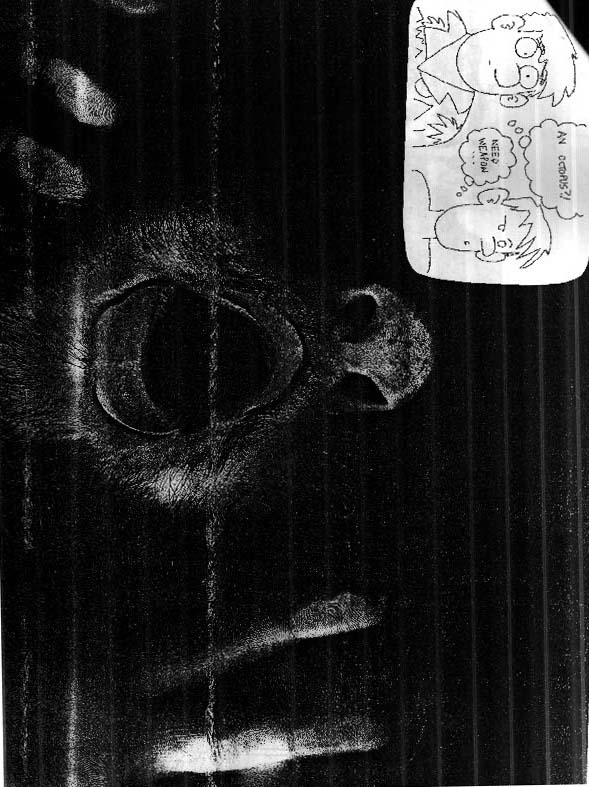 AN OCTOPUS?!
NEED
WEAPON
...